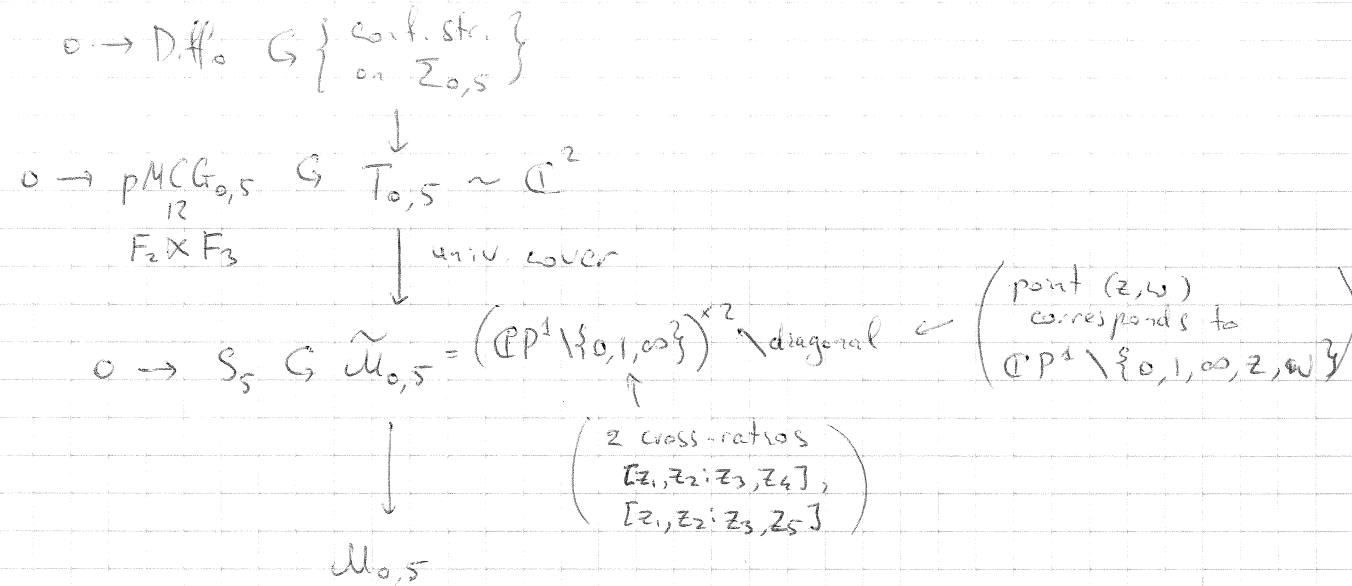 0 → Diff₀ ↺ { conf. str.
on Σ₀,₅ }
↓
0 → pMCG₀,₅ ↺ T₀,₅ ~ ℂ²
≀≀
F₂ × F₃
↓ univ. cover
0 → S₅ ↺ M̃₀,₅ = (ℂP¹\{0,1,∞})ˣ² \ diagonal ← ( point (z,w)
corresponds to
ℂP¹\{0,1,∞,z,w} )
↑
↓
( 2 cross-ratios
[z₁,z₂:z₃,z₄],
[z₁,z₂:z₃,z₅] )
M₀,₅